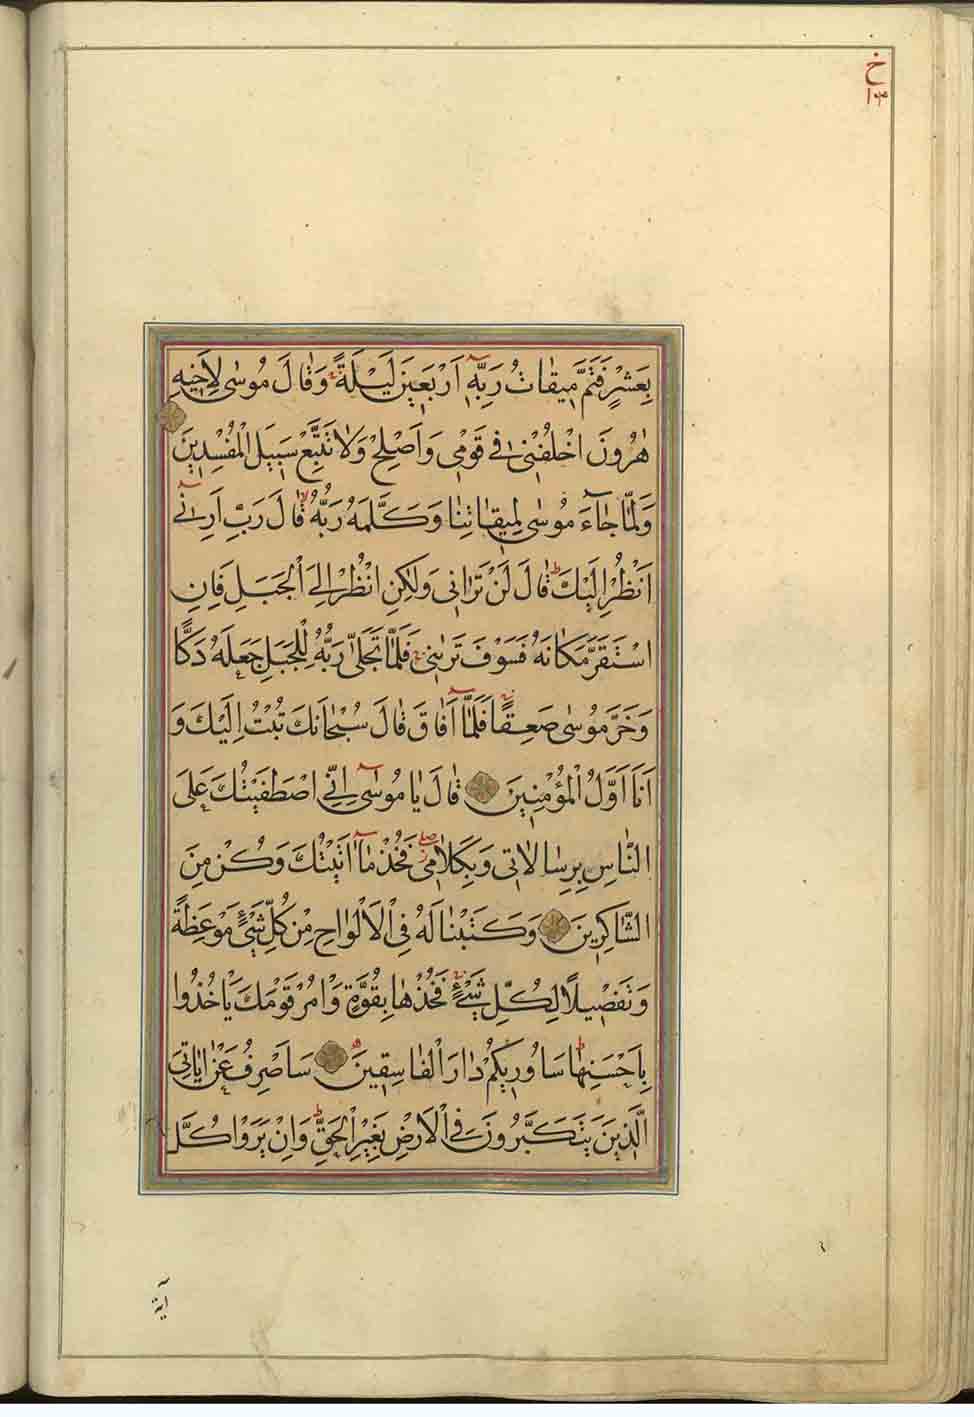 خ
بِعَشْرٍ فَتَمَّ مِيقَاتُ رَبِّهِ اَرْبَعِينَ لَيْلَةً وَقَالَ مُوسٰى لِاَخِيهِ
هٰرُونَ اخْلُفْنِى فِى قَوْمِى وَاَصْلِحْ وَلَا تَتَّبِعْ سَبِيلَ الْمُفْسِدِينَ
وَلَمَّا جَاۤءَ مُوسٰى لِمِيقَاتِنَا وَكَلَّمَهُ رَبُّهُ قَالَ رَبِّ اَرِنِىۤ
اَنْظُرْ اِلَيْكَ قَالَ لَنْ تَرَانِى وَلٰكِنِ انْظُرْ اِلَى الْجَبَلِ فَاِنِ
اسْتَقَرَّ مَكَانَهُ فَسَوْفَ تَرٰينِى فَلَمَّا تَجَلّٰى رَبُّهُ لِلْجَبَلِ جَعَلَهُ دَكًّا
وَخَرَّ مُوسٰى صَعِقًا فَلَمَّاۤ اَفَاقَ قَالَ سُبْحَانَكَ تُبْتُ اِلَيْكَ وَ
اَنَا اَوَّلُ الْمُؤْمِنِينَ قَالَ يَا مُوسٰىۤ اِنِّى اصْطَفَيْتُكَ عَلَى
النَّاسِ بِرِسَالَاتِى وَبِكَلَامِى فَخُذْ مَاۤ اٰتَيْتُكَ وَكُنْ مِنَ
الشَّاكِرِينَ وَكَتَبْنَا لَهُ فِى الْاَلْوَاحِ مِنْ كُلِّ شَىْءٍ مَوْعِظَةً
وَتَفْصِيلًا لِكُلِّ شَىْءٍ فَخُذْهَا بِقُوَّةٍ وَاْمُرْ قَوْمَكَ يَاْخُذُوا
بِاَحْسَنِهَا سَاُورِيكُمْ دَارَ الْفَاسِقِينَ سَاَصْرِفُ عَنْ اٰيَاتِىَ
الَّذِينَ يَتَكَبَّرُونَ فِى الْاَرْضِ بِغَيْرِ الْحَقِّ وَاِنْ يَرَوْا كُلَّ
آية